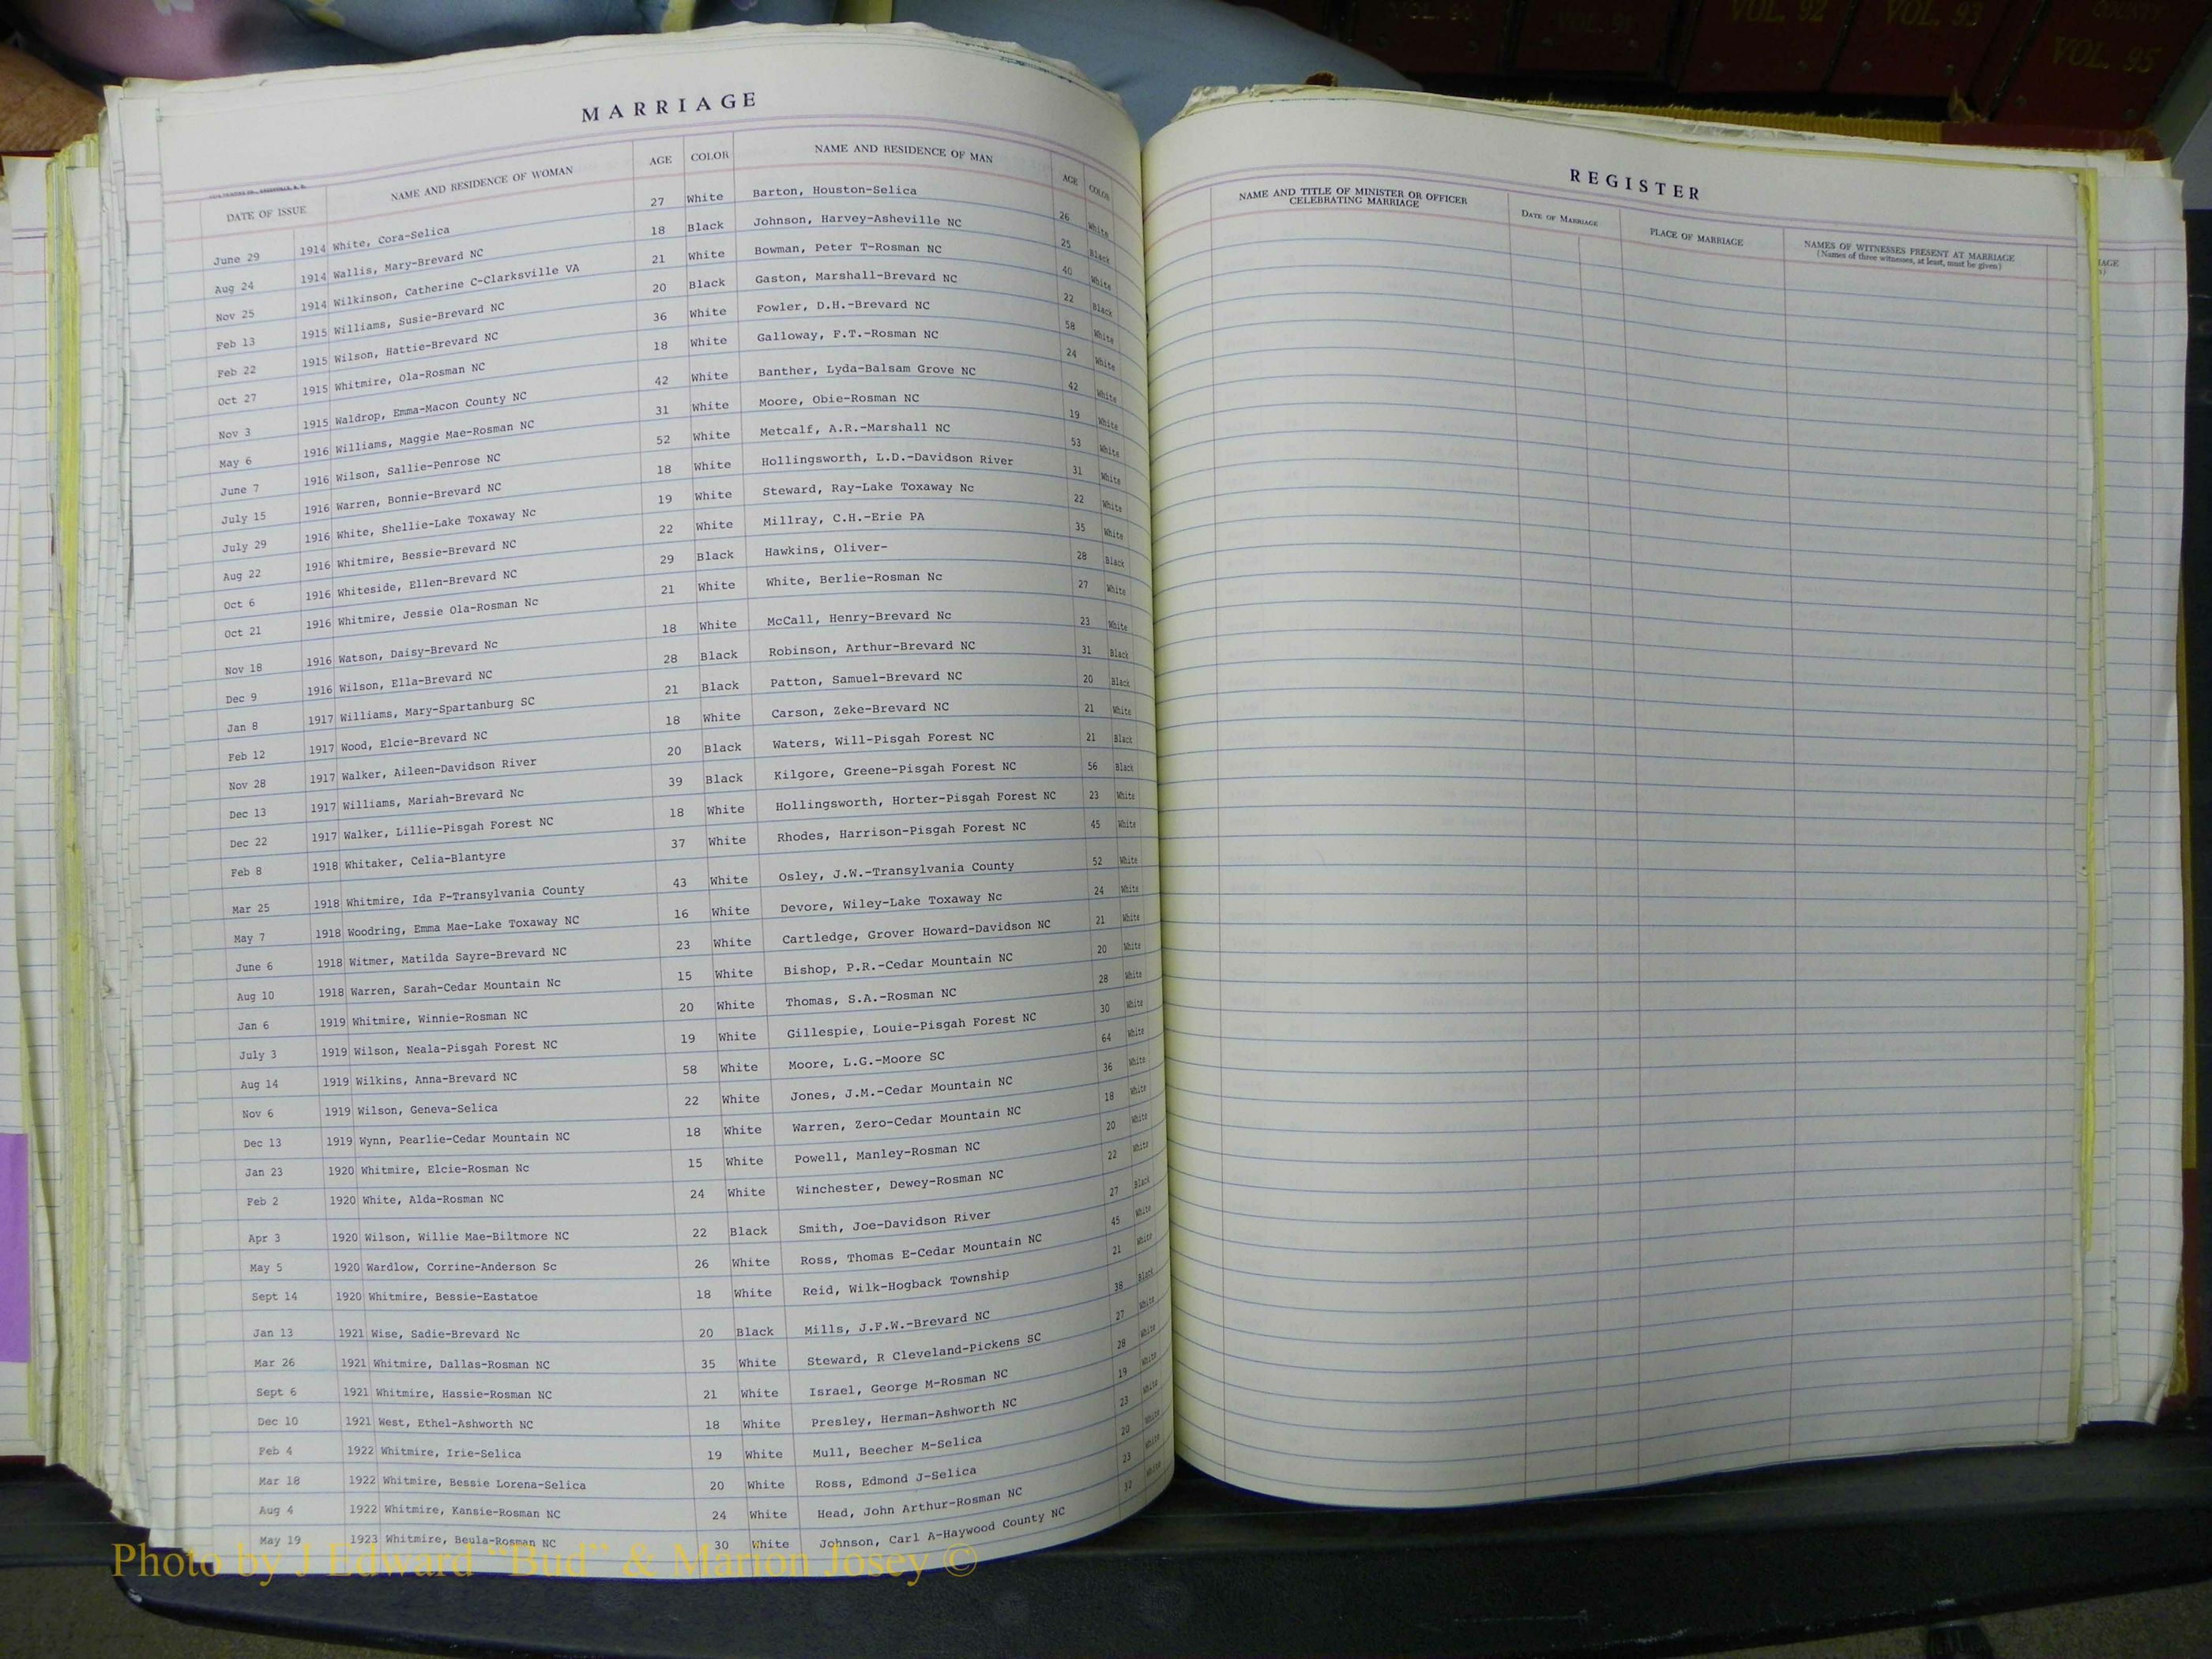 VOL. 92
VOL. 93
COUNTY
VOL. 95
MARRIAGE
DATE OF ISSUE NAME AND RESIDENCE OF WOMAN AGE COLOR NAME AND RESIDENCE OF MAN AGE COLOR
June 29 1914 White, Cora-Selica 27 White Barton, Houston-Selica 26 White
Aug 24 1914 Wallis, Mary-Brevard NC 18 Black Johnson, Harvey-Asheville NC 25 Black
Nov 25 1914 Wilkinson, Catherine C-Clarksville VA 21 White Bowman, Peter T-Rosman NC 40 White
Feb 13 1915 Williams, Susie-Brevard NC 20 Black Gaston, Marshall-Brevard NC 22 Black
Feb 22 1915 Wilson, Hattie-Brevard NC 36 White Fowler, D.H.-Brevard NC 58 White
Oct 27 1915 Whitmire, Ola-Rosman NC 18 White Galloway, F.T.-Rosman NC 24 White
Nov 3 1915 Waldrop, Emma-Macon County NC 42 White Banther, Lyda-Balsam Grove NC 42 White
May 6 1916 Williams, Maggie Mae-Rosman NC 31 White Moore, Obie-Rosman NC 19 White
June 7 1916 Wilson, Sallie-Penrose NC 52 White Metcalf, A.R.-Marshall NC 53 White
July 15 1916 Warren, Bonnie-Brevard NC 18 White Hollingsworth, L.D.-Davidson River 31 White
July 29 1916 White, Shellie-Lake Toxaway Nc 19 White Steward, Ray-Lake Toxaway Nc 22 White
Aug 22 1916 Whitmire, Bessie-Brevard NC 22 White Millray, C.H.-Erie PA 35 White
Oct 6 1916 Whiteside, Ellen-Brevard NC 29 Black Hawkins, Oliver- 28 Black
Oct 21 1916 Whitmire, Jessie Ola-Rosman Nc 21 White White, Berlie-Rosman Nc 27 White
Nov 18 1916 Watson, Daisy-Brevard Nc 18 White McCall, Henry-Brevard Nc 23 White
Dec 9 1916 Wilson, Ella-Brevard NC 28 Black Robinson, Arthur-Brevard NC 31 Black
Jan 8 1917 Williams, Mary-Spartanburg SC 21 Black Patton, Samuel-Brevard NC 20 Black
Feb 12 1917 Wood, Elcie-Brevard NC 18 White Carson, Zeke-Brevard NC 21 White
Nov 28 1917 Walker, Aileen-Davidson River 20 Black Waters, Will-Pisgah Forest NC 21 Black
Dec 13 1917 Williams, Mariah-Brevard Nc 39 Black Kilgore, Greene-Pisgah Forest NC 56 Black
Dec 22 1917 Walker, Lillie-Pisgah Forest NC 18 White Hollingsworth, Horter-Pisgah Forest NC 23 White
Feb 8 1918 Whitaker, Celia-Blantyre 37 White Rhodes, Harrison-Pisgah Forest NC 45 White
Mar 25 1918 Whitmire, Ida F-Transylvania County 43 White Osley, J.W.-Transylvania County 52 White
May 7 1918 Woodring, Emma Mae-Lake Toxaway NC 16 White Devore, Wiley-Lake Toxaway Nc 24 White
June 6 1918 Witmer, Matilda Sayre-Brevard NC 23 White Cartledge, Grover Howard-Davidson NC 21 White
Aug 10 1918 Warren, Sarah-Cedar Mountain Nc 15 White Bishop, P.R.-Cedar Mountain NC 20 White
Jan 6 1919 Whitmire, Winnie-Rosman NC 20 White Thomas, S.A.-Rosman NC 28 White
July 3 1919 Wilson, Neala-Pisgah Forest NC 19 White Gillespie, Louie-Pisgah Forest NC 30 White
Aug 14 1919 Wilkins, Anna-Brevard NC 58 White Moore, L.G.-Moore SC 64 White
Nov 6 1919 Wilson, Geneva-Selica 22 White Jones, J.M.-Cedar Mountain NC 36 White
Dec 13 1919 Wynn, Pearlie-Cedar Mountain NC 18 White Warren, Zero-Cedar Mountain NC 18 White
Jan 23 1920 Whitmire, Elcie-Rosman Nc 15 White Powell, Manley-Rosman NC 20 White
Feb 2 1920 White, Alda-Rosman NC 24 White Winchester, Dewey-Rosman NC 22 White
Apr 3 1920 Wilson, Willie Mae-Biltmore NC 22 Black Smith, Joe-Davidson River 27 Black
May 5 1920 Wardlow, Corrine-Anderson Sc 26 White Ross, Thomas E-Cedar Mountain NC 45 White
Sept 14 1920 Whitmire, Bessie-Eastatoe 18 White Reid, Wilk-Hogback Township 21 White
Jan 13 1921 Wise, Sadie-Brevard Nc 20 Black Mills, J.F.W.-Brevard NC 38 Black
Mar 26 1921 Whitmire, Dallas-Rosman NC 35 White Steward, R Cleveland-Pickens SC 27 White
Sept 6 1921 Whitmire, Hassie-Rosman NC 21 White Israel, George M-Rosman NC 28 White
Dec 10 1921 West, Ethel-Ashworth NC 18 White Presley, Herman-Ashworth NC 19 White
Feb 4 1922 Whitmire, Irie-Selica 19 White Mull, Beecher M-Selica 23 White
Mar 18 1922 Whitmire, Bessie Lorena-Selica 20 White Ross, Edmond J-Selica 20 White
Aug 4 1922 Whitmire, Kansie-Rosman NC 24 White Head, John Arthur-Rosman NC 23 White
May 19 1923 Whitmire, Beula-Rosman NC 30 White Johnson, Carl A-Haywood County NC 32 White
REGISTER
NAME AND TITLE OF MINISTER OR OFFICER CELEBRATING MARRIAGE DATE OF MARRIAGE PLACE OF MARRIAGE NAMES OF WITNESSES PRESENT AT MARRIAGE
(Names of three witnesses, at least, must be given)
Photo by J Edward "Bud" & Marion Josey ©